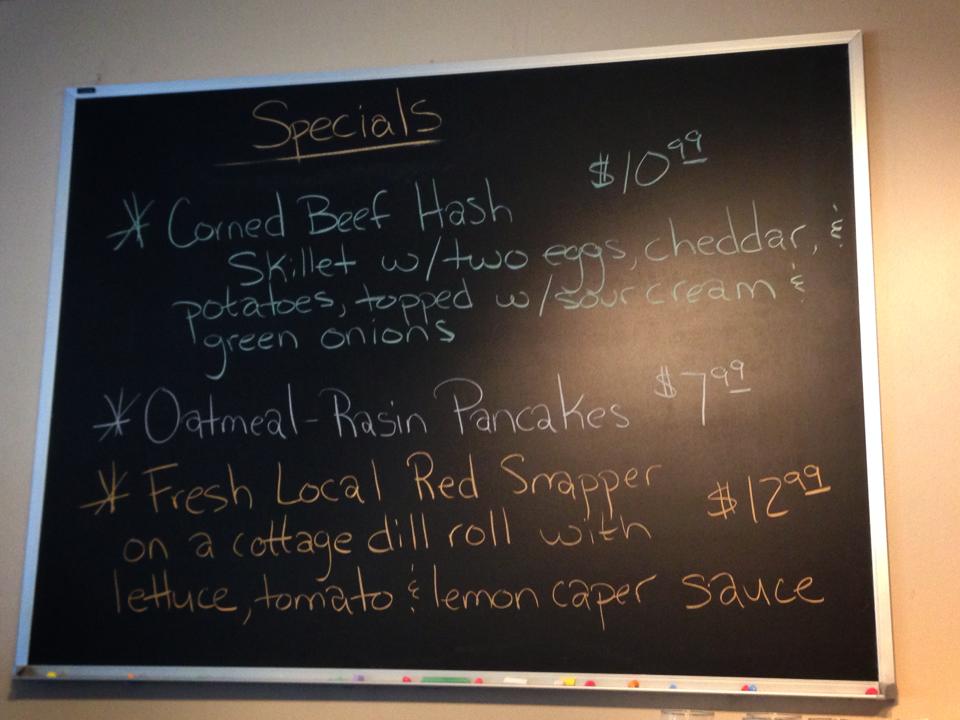 Specials
* Corned Beef Hash $10.99
Skillet w/two eggs, cheddar, &
potatoes, topped w/sour cream &
green onions
* Oatmeal-Rasin Pancakes $7.99
* Fresh Local Red Snapper $12.99
on a cottage dill roll with
lettuce, tomato & lemon caper sauce